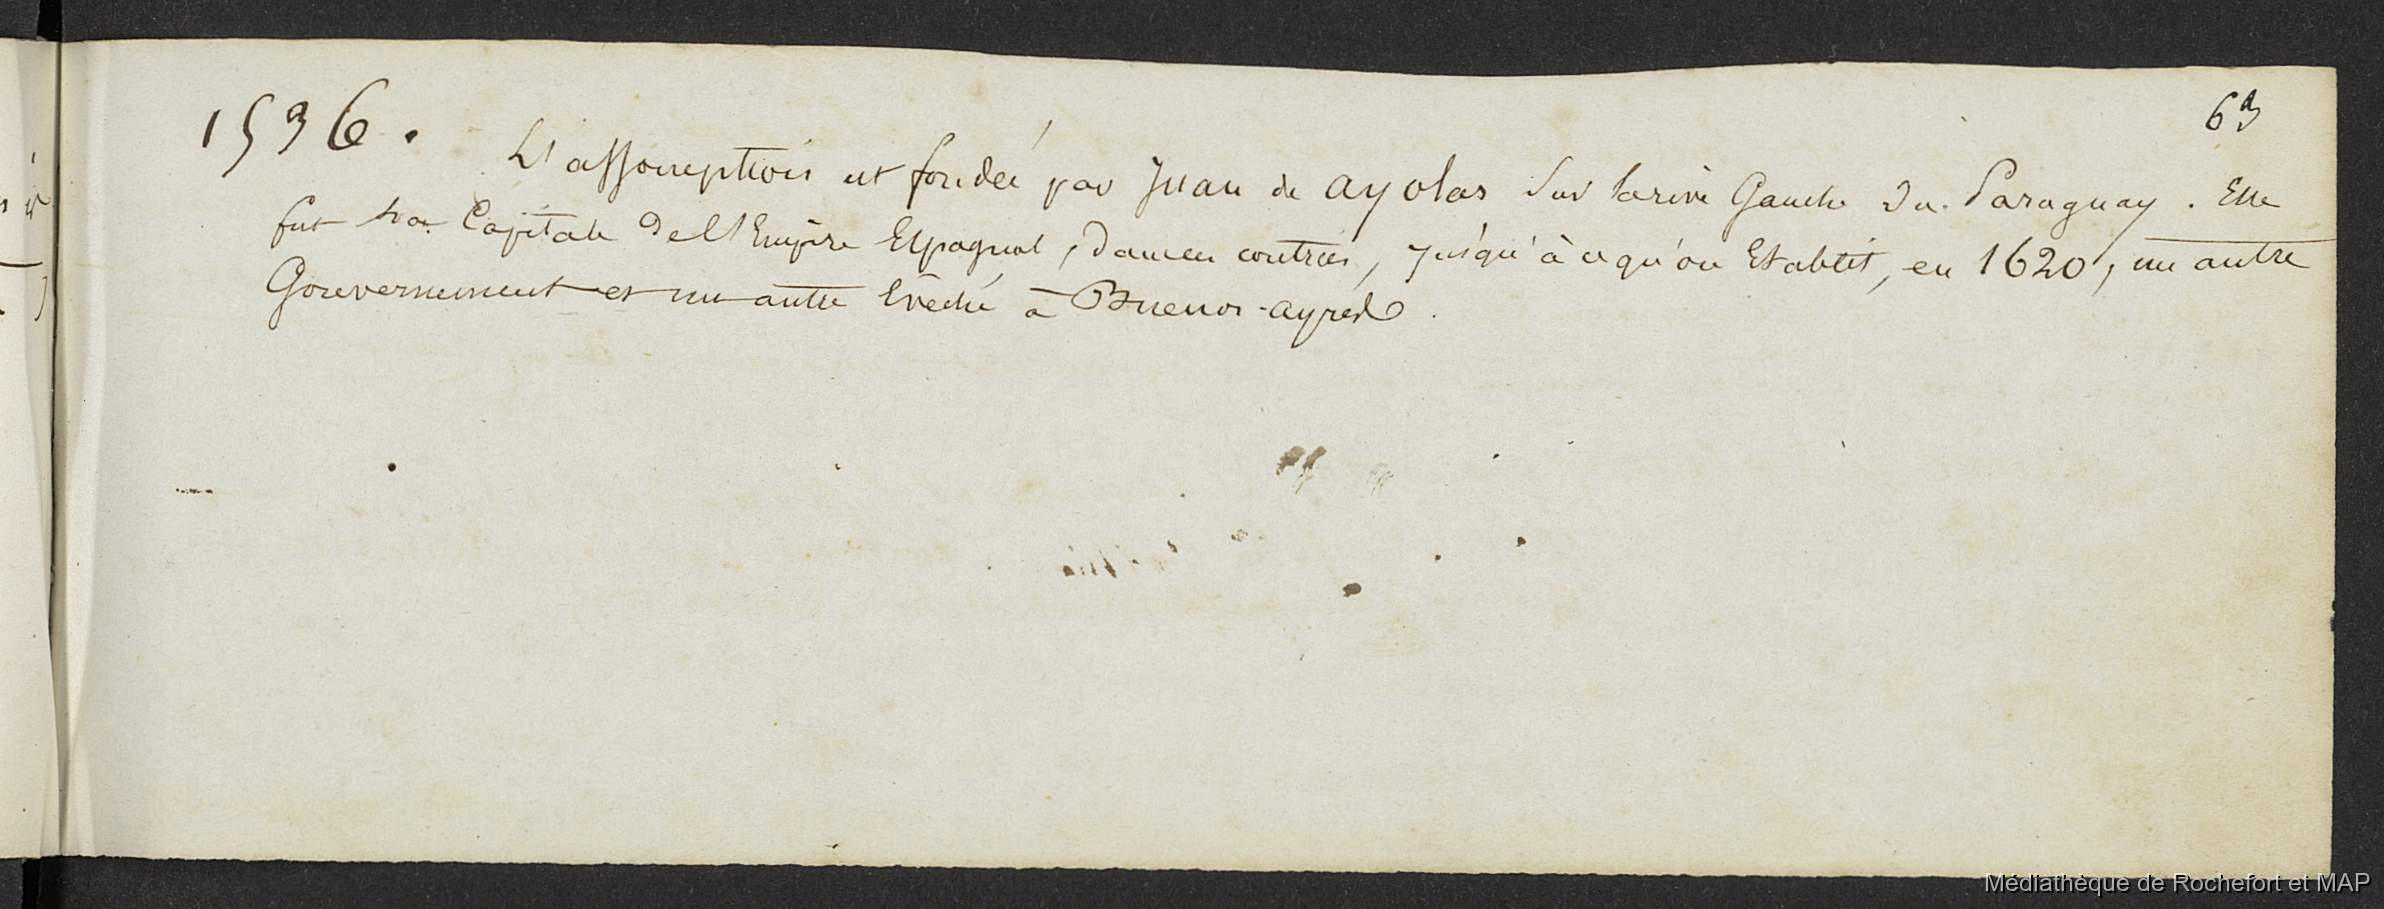 63
1536.
L'assomption est fondée par Juan de ayolas sur la rive Gauche du Paraguay. Elle
fut la Capitale de l'Empire Espagnol, dans ces contrées, jusqu'à ce qu'on Etablit, en 1620, un autre
Gouvernement et un autre Evêché à Buenos-ayres.
Médiathèque de Rochefort et MAP